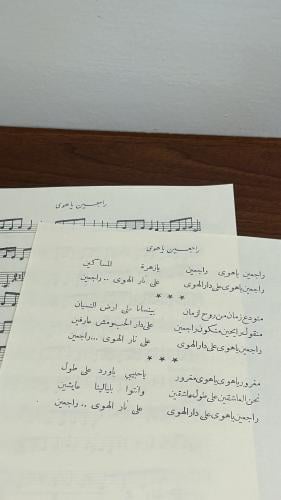 راجعين ياهوى
راجعين ياهوى
راجعين ياهوى راجعين يازهرة المساكين
راجعين ياهوى على دار الهوى على نار الهوى .. راجعين
* * *
منودع زمان من روح لزمان بينسانا على ارض النسيان
منقول رايحين منكون راجعين على دار الحب ومش عارفين
راجعين ياهوى على دار الهوى على نار الهوى ... راجعين
* * *
مغرور ياهوى ياهوى مغرور ياحبيبي ياورد على طول
نحن العاشقين على طول عاشقين وانتوا بليالينا عايشين
راجعين ياهوى على دار الهوى على نار الهوى .. راجعين